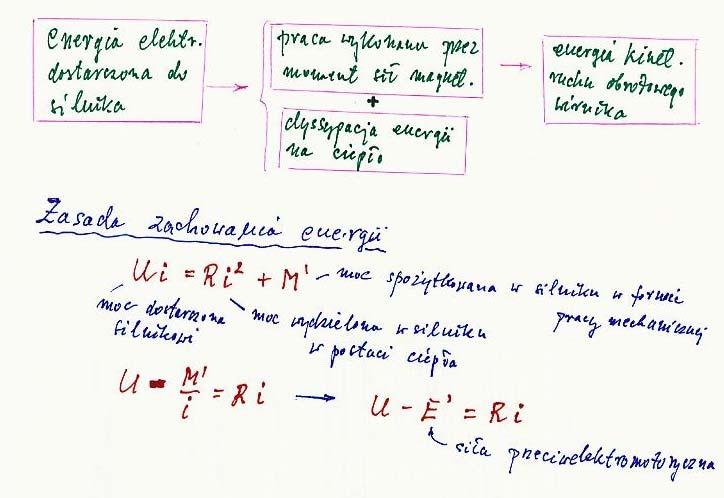 energia elektr.
dostarczona do
silnika
praca wykonana przez
moment sił magnet.
+
dyssypacja energii
na ciepło
energia kinet.
ruchu obrotowego
wirnika
Zasada zachowania energii
Ui = Ri² + M'
moc spożytkowana w silniku w formie
pracy mechanicznej
moc dostarczona
silnikowi
moc wydzielona w silniku
w postaci ciepła
U - M'/i = Ri → U - E' = Ri
siła przeciwelektromotoryczna